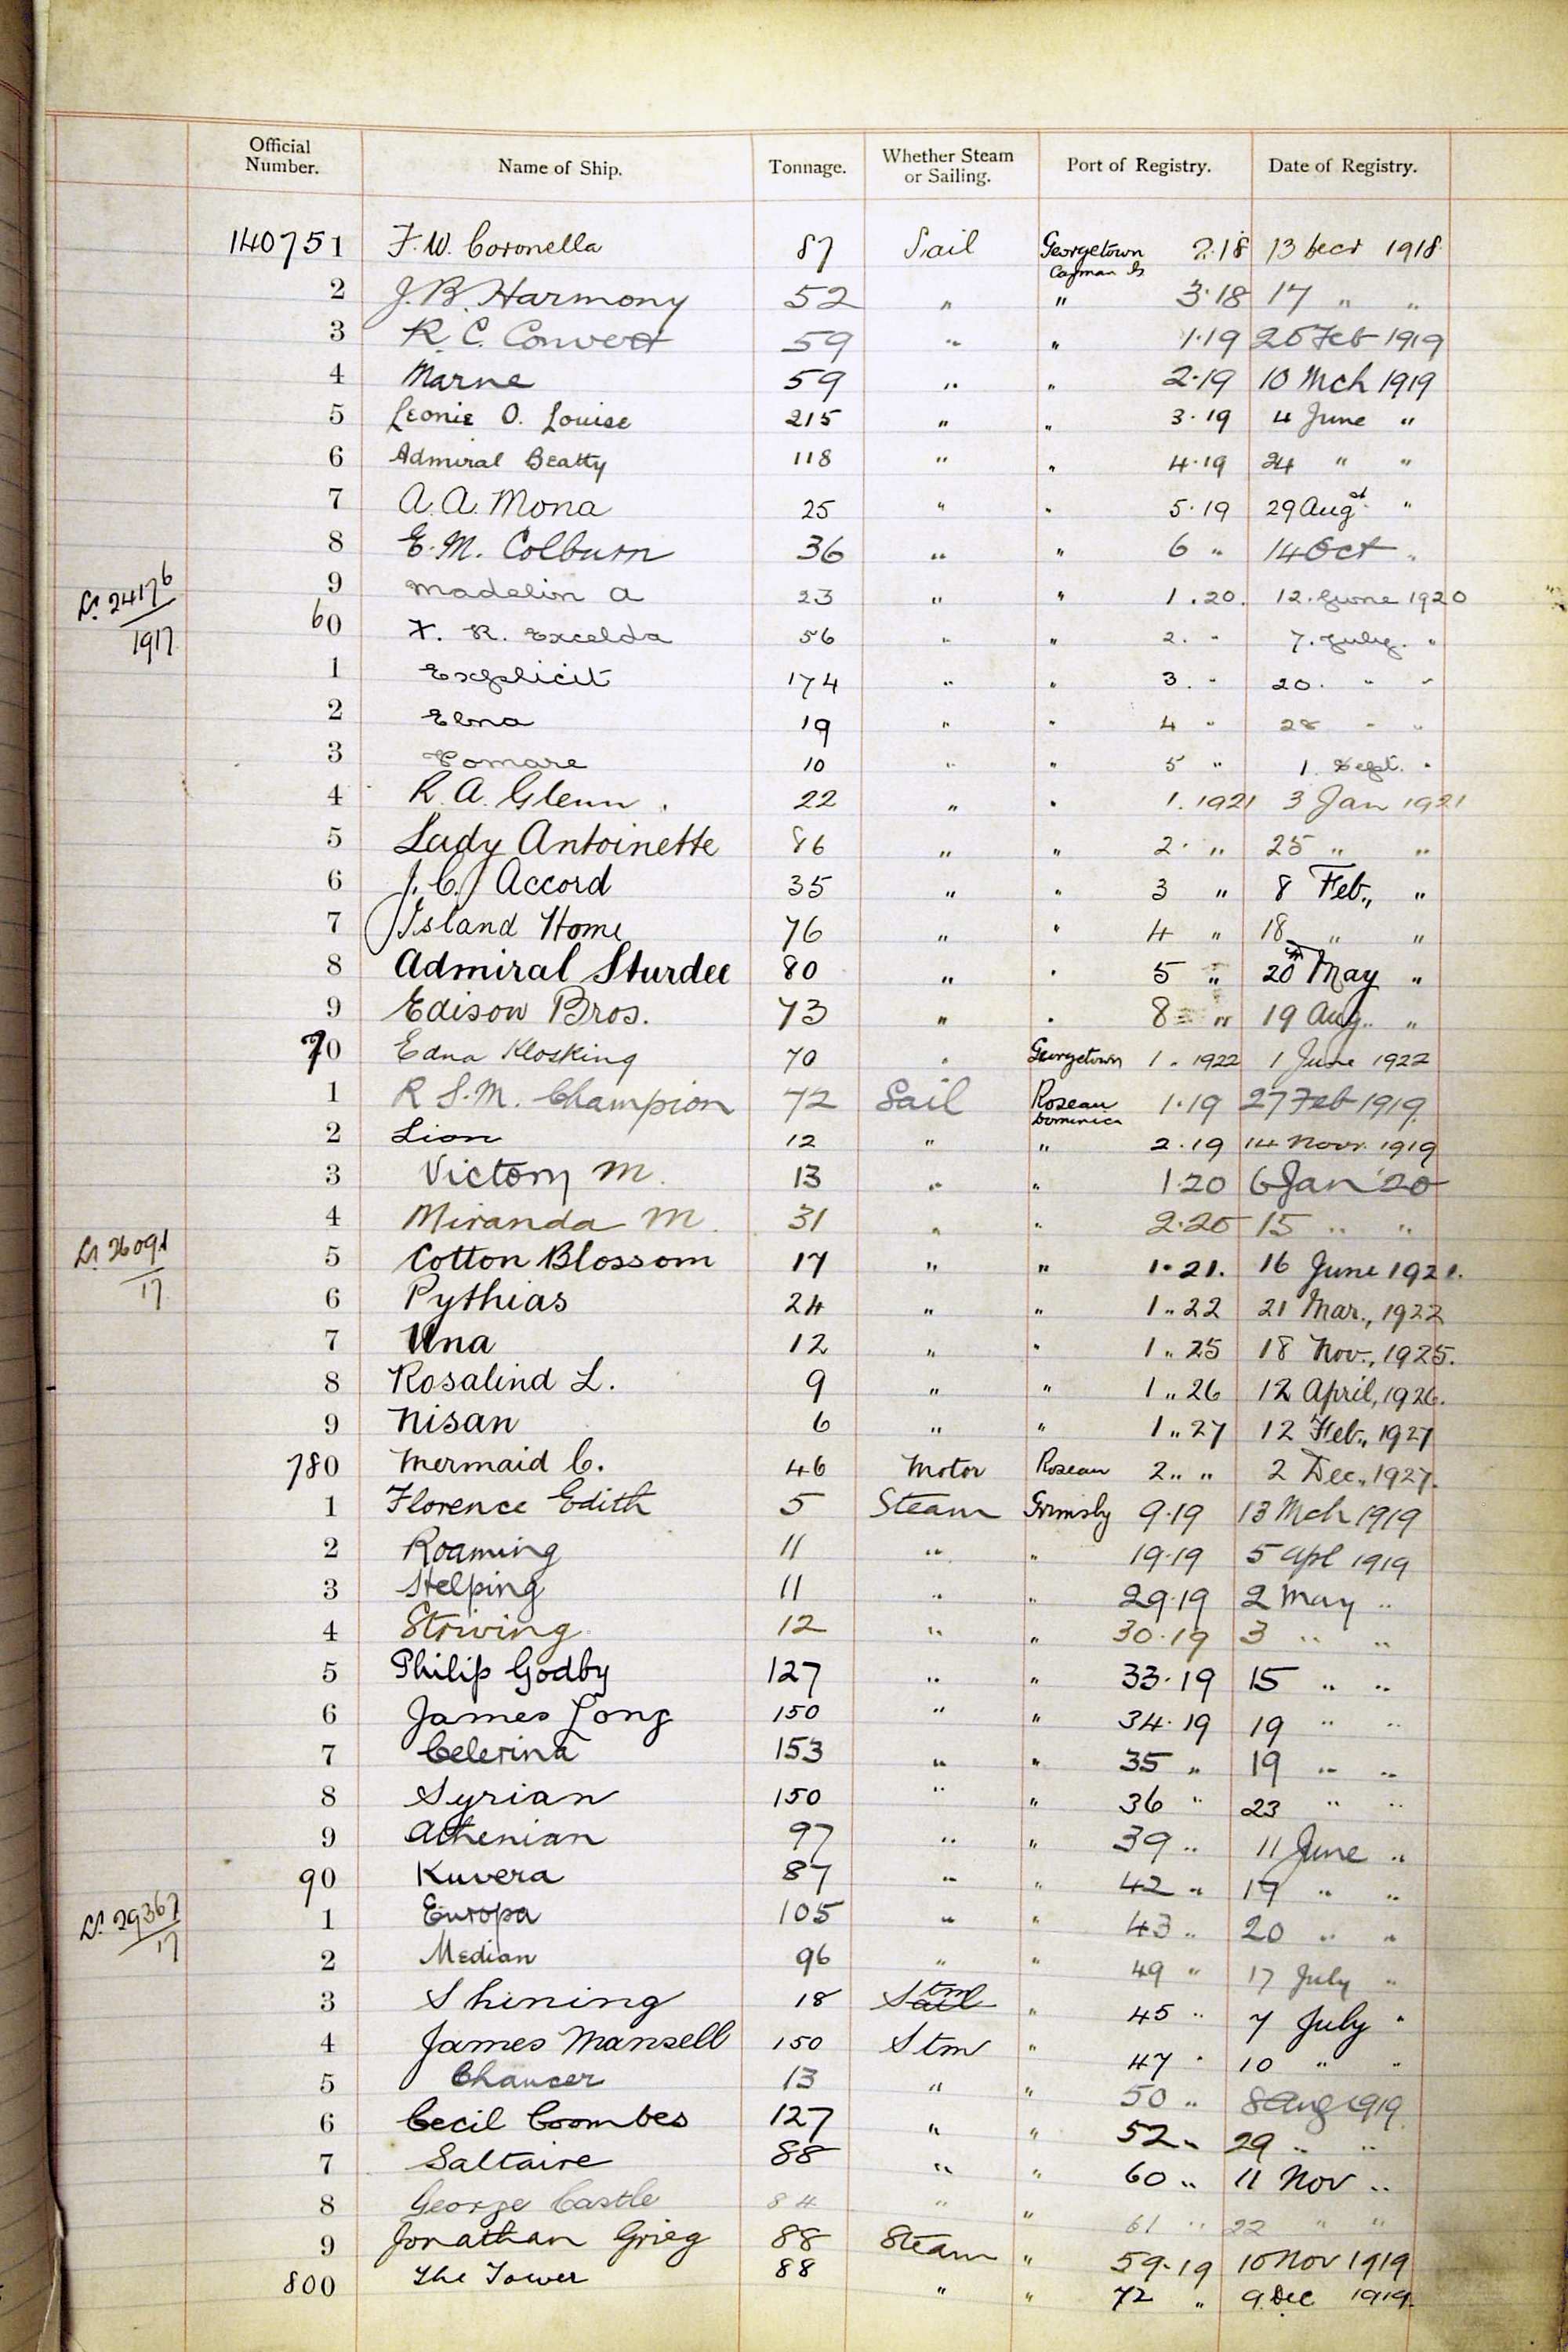 Official Number. Name of Ship. Tonnage. Whether Steam or Sailing. Port of Registry. Date of Registry.
140751 F. W. Coronella 87 Sail Georgetown Cayman Is 2.18 13 Decr 1918
2 J. B. Harmony 52 " " 3.18 17 " "
3 R. C. Convert 59 " " 1.19 Feb 1919
4 Marne 59 " " 2.19 10 Mch 1919
5 Leonie O. Louise 215 " " 3.19 4 June "
6 Admiral Beatty 118 " " 4.19 24 " "
7 A. A. Mona 25 " " 5.19 29 Augst "
8 E. M. Colburn 36 " " 6 " 14 Oct "
Lr. 24176
1917
9 Madelin A 23 " " 1.20. 12. June 1920
60 R. Excelda 56 " " 2. " 7. July. "
1 Explicit 174 " " 3. " 20. " "
2 19 " " 4 " 28 " "
3 Pomare 10 " " 5 " 1. Sept. "
4 R. A. Glenn. 22 " " 1.1921 3 Jan 1921
5 Lady Antoinette 86 " " 2. " 25 " "
6 J. C. Accord 35 " " 3 " 8 Feb., "
7 Island Home 76 " " 4 " 18 " "
8 Admiral Sturdee 80 " " 5 " 20th May "
9 Edison Bros. 73 " " 8 " 19 Aug. "
70 Edna Klosking 70 " Georgetown 1. 1922 1 June 1922
1 R. S. M. Champion 72 Sail Roseau Dominica 1.19 27 Feb 1919.
2 Lion 12 " " 2.19 14 Novr. 1919
3 Victory M. 13 " " 1.20 6 Jan '20
4 Miranda M. 31 " " 2.20 15 " "
Lr. 26091
17
5 Cotton Blossom 17 " " 1.21. 16 June 1921.
6 Pythias 24 " " 1 " 22 21 Mar., 1922
7 Una 12 " " 1 " 25 18 Nov., 1925.
8 Rosalind L. 9 " " 1 " 26 12 April, 1926.
9 Nisan 6 " " 1 " 27 12 Feb., 1927
780 Mermaid C. 46 Motor Roseau 2 " " 2 Dec., 1927.
1 Florence Edith 5 Steam Grimsby 9.19 13 Mch 1919
2 Roaming 11 " " 19.19 5 Apl 1919
3 Helping 11 " " 29.19 2 May "
4 Striving 12 " " 30.19 3 " "
5 Philip Godby 127 " " 33.19 15 " "
6 James Long 150 " " 34.19 19 " "
7 Celerina 153 " " 35 " 19 " "
8 Syrian 150 " " 36 " 23 " "
9 Athenian 97 " " 39 " 11 June "
90 Kuvera 87 " " 42 " 19 " "
Lr. 29367
17
1 Europa 105 " " 43 " 20 " "
2 Median 96 " " 49 " 17 July "
3 Shining 18 Sail Stm " 45 " 7 July "
4 James Mansell 150 Stm " 47 " 10 " "
5 Chaucer 13 " " 50 " 8 Aug 1919
6 Cecil Coombes 127 " " 52 " 29 " "
7 Saltaire 88 " " 60 " 11 Nov "
8 George Castle 84 " " 61 " 22 " "
9 Jonathan Grieg 88 Steam " 59.19 10 Nov 1919
800 The Tower 88 " " 72 " 9. Dec 1919.